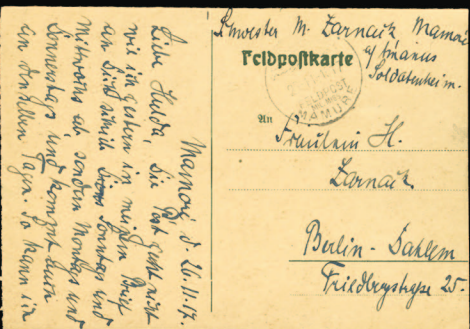 Schwester M. Zarnack Mamoré
Soldatenheim.
Feldpostkarte
MAMURE
An
Fräulein H.
Zarnack
Berlin - Dahlem
Friedbergstrasse 25.
Mamoré, d. 26.11.17.
Liebe Hulda, Die Post geht nicht
wie ich gestern in meinem Brief
an Dich schrieb Sonntag und
Mittwochs ab sondern Montags und
Donnerstags und kommt auch
an denselben Tagen. So kann ich